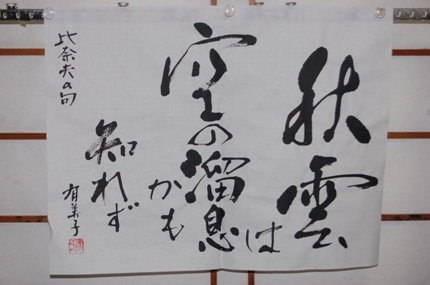 秋雲は
空の溜息
かも
知れず
比奈夫の句
有美子